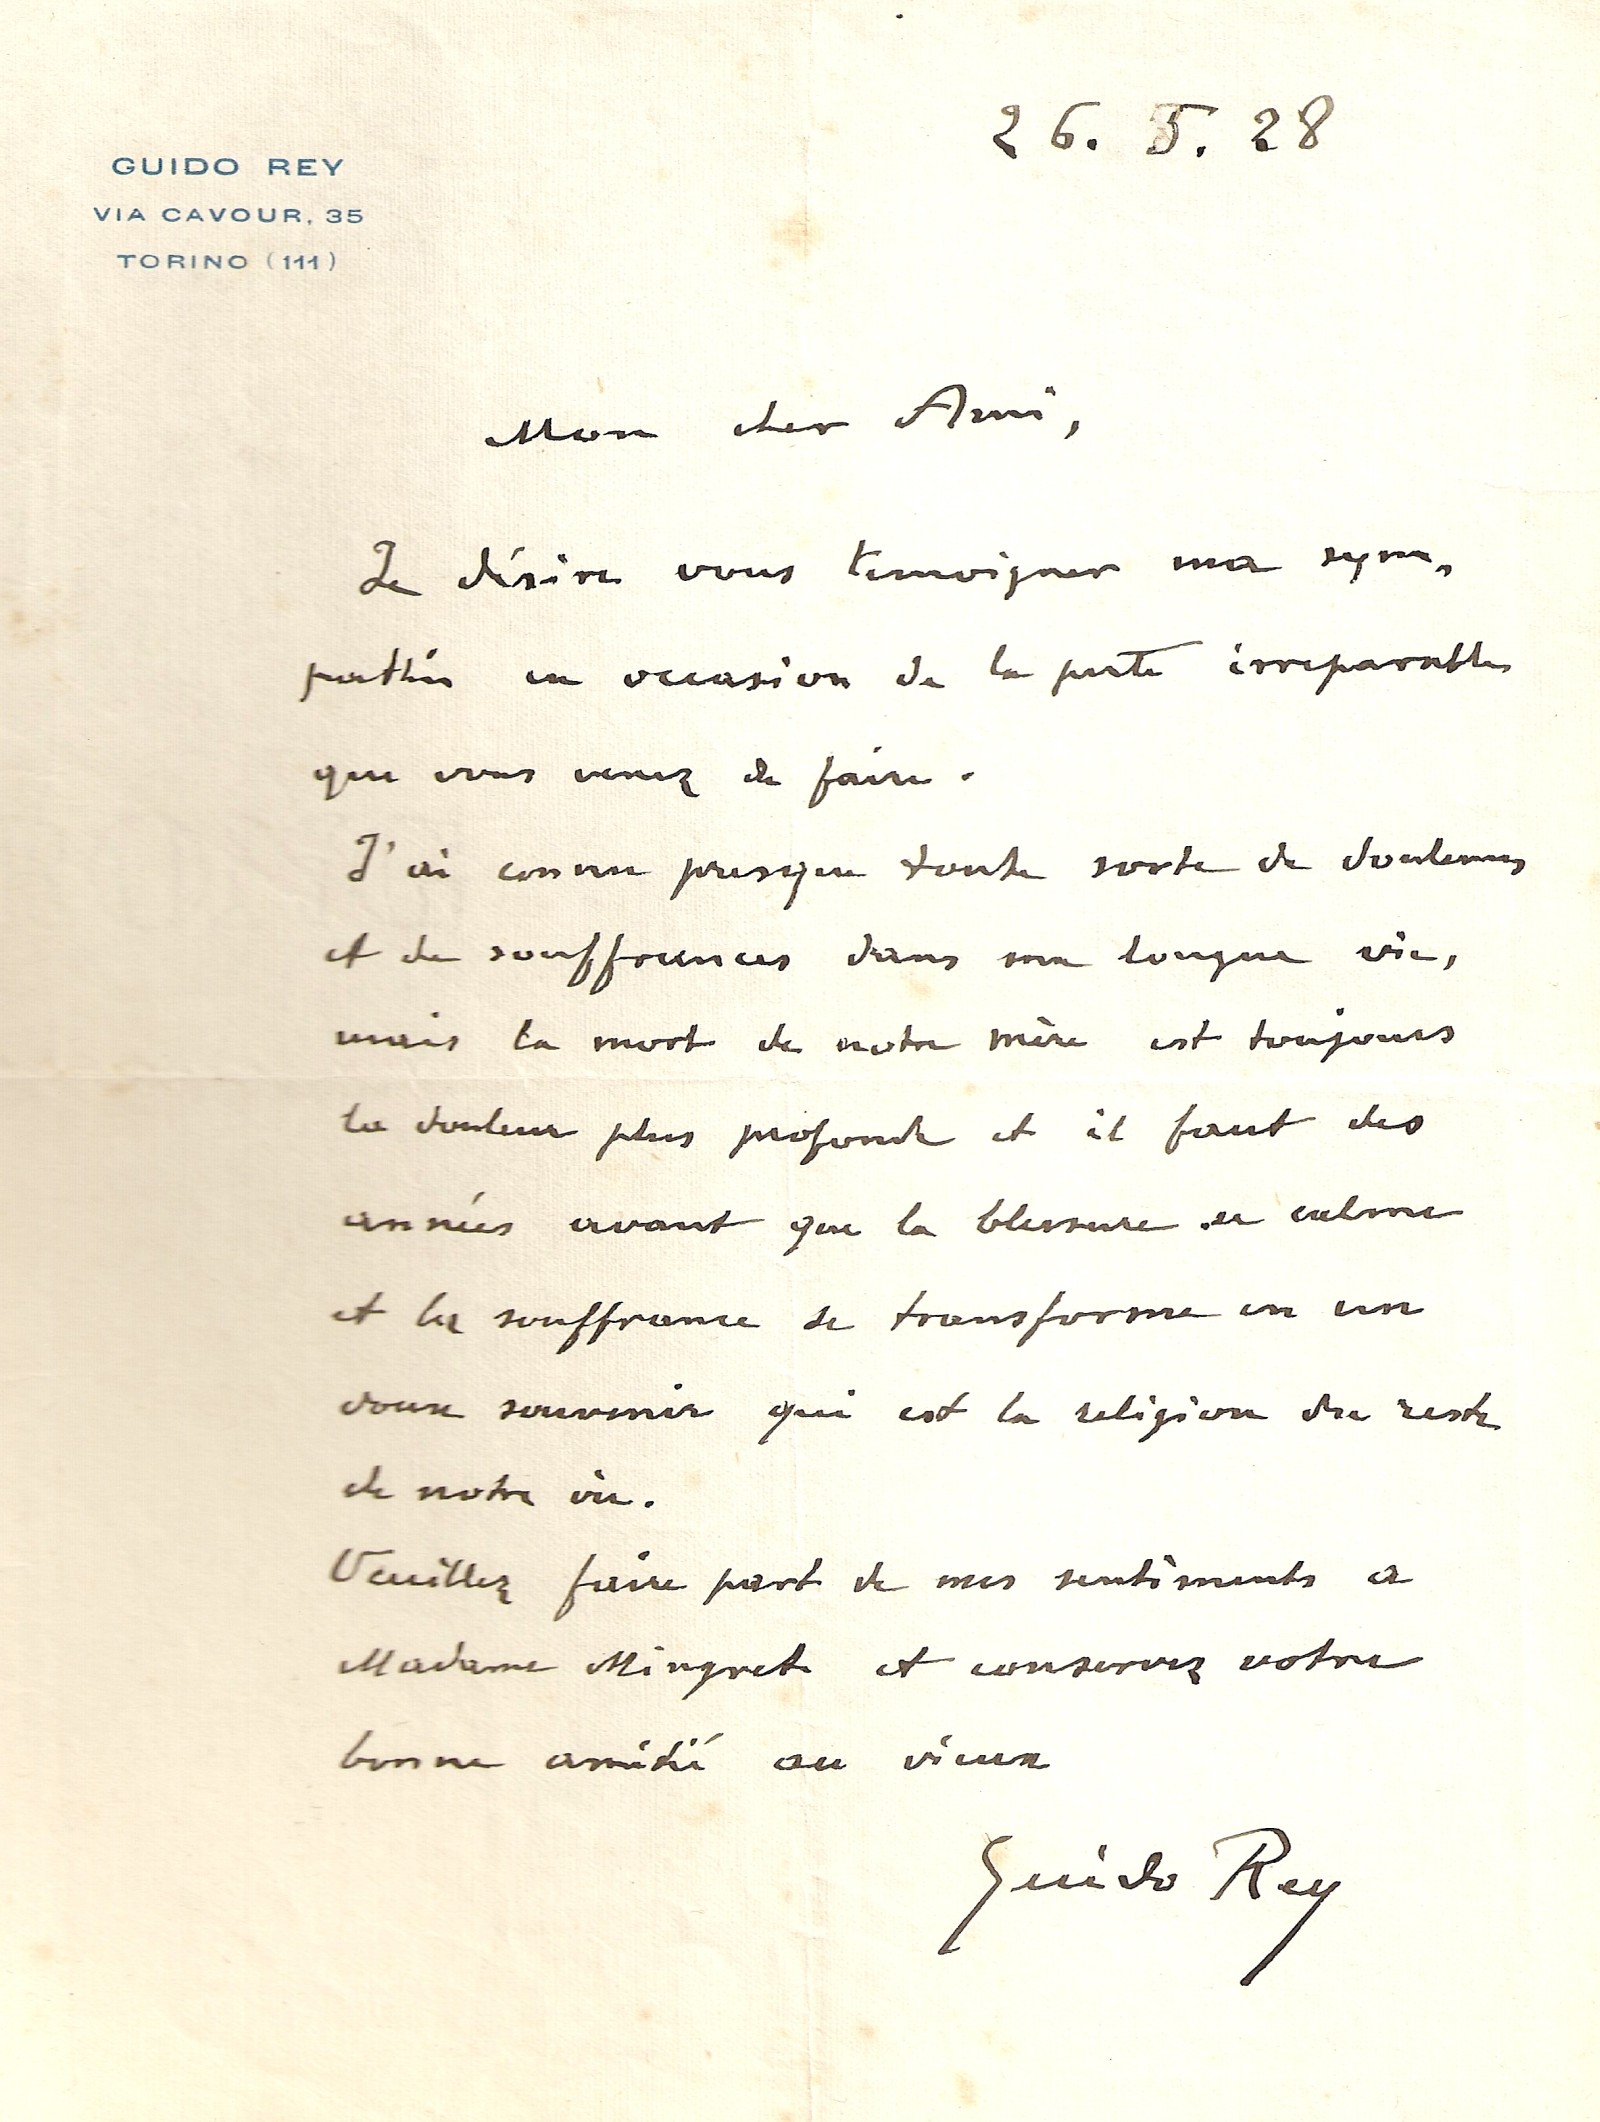 GUIDO REY
VIA CAVOUR, 35
TORINO (111)
26. 5. 28
Mon cher Ami,
Je désire vous temoigner ma sym-
pathie en occasion de la perte irreparable
que vous venez de faire.
J'ai connu presque toute sorte de douleurs
et de souffrances dans ma longue vie,
mais la mort de notre mère est toujours
la douleur plus profonde et il faut des
années avant que la blessure se calme
et la souffrance se transforme en un
doux souvenir qui est la religion du reste
de notre vie.
Veuillez faire part de mes sentiments a
Madame Mingret et conservez votre
bonne amitié au vieux
Guido Rey